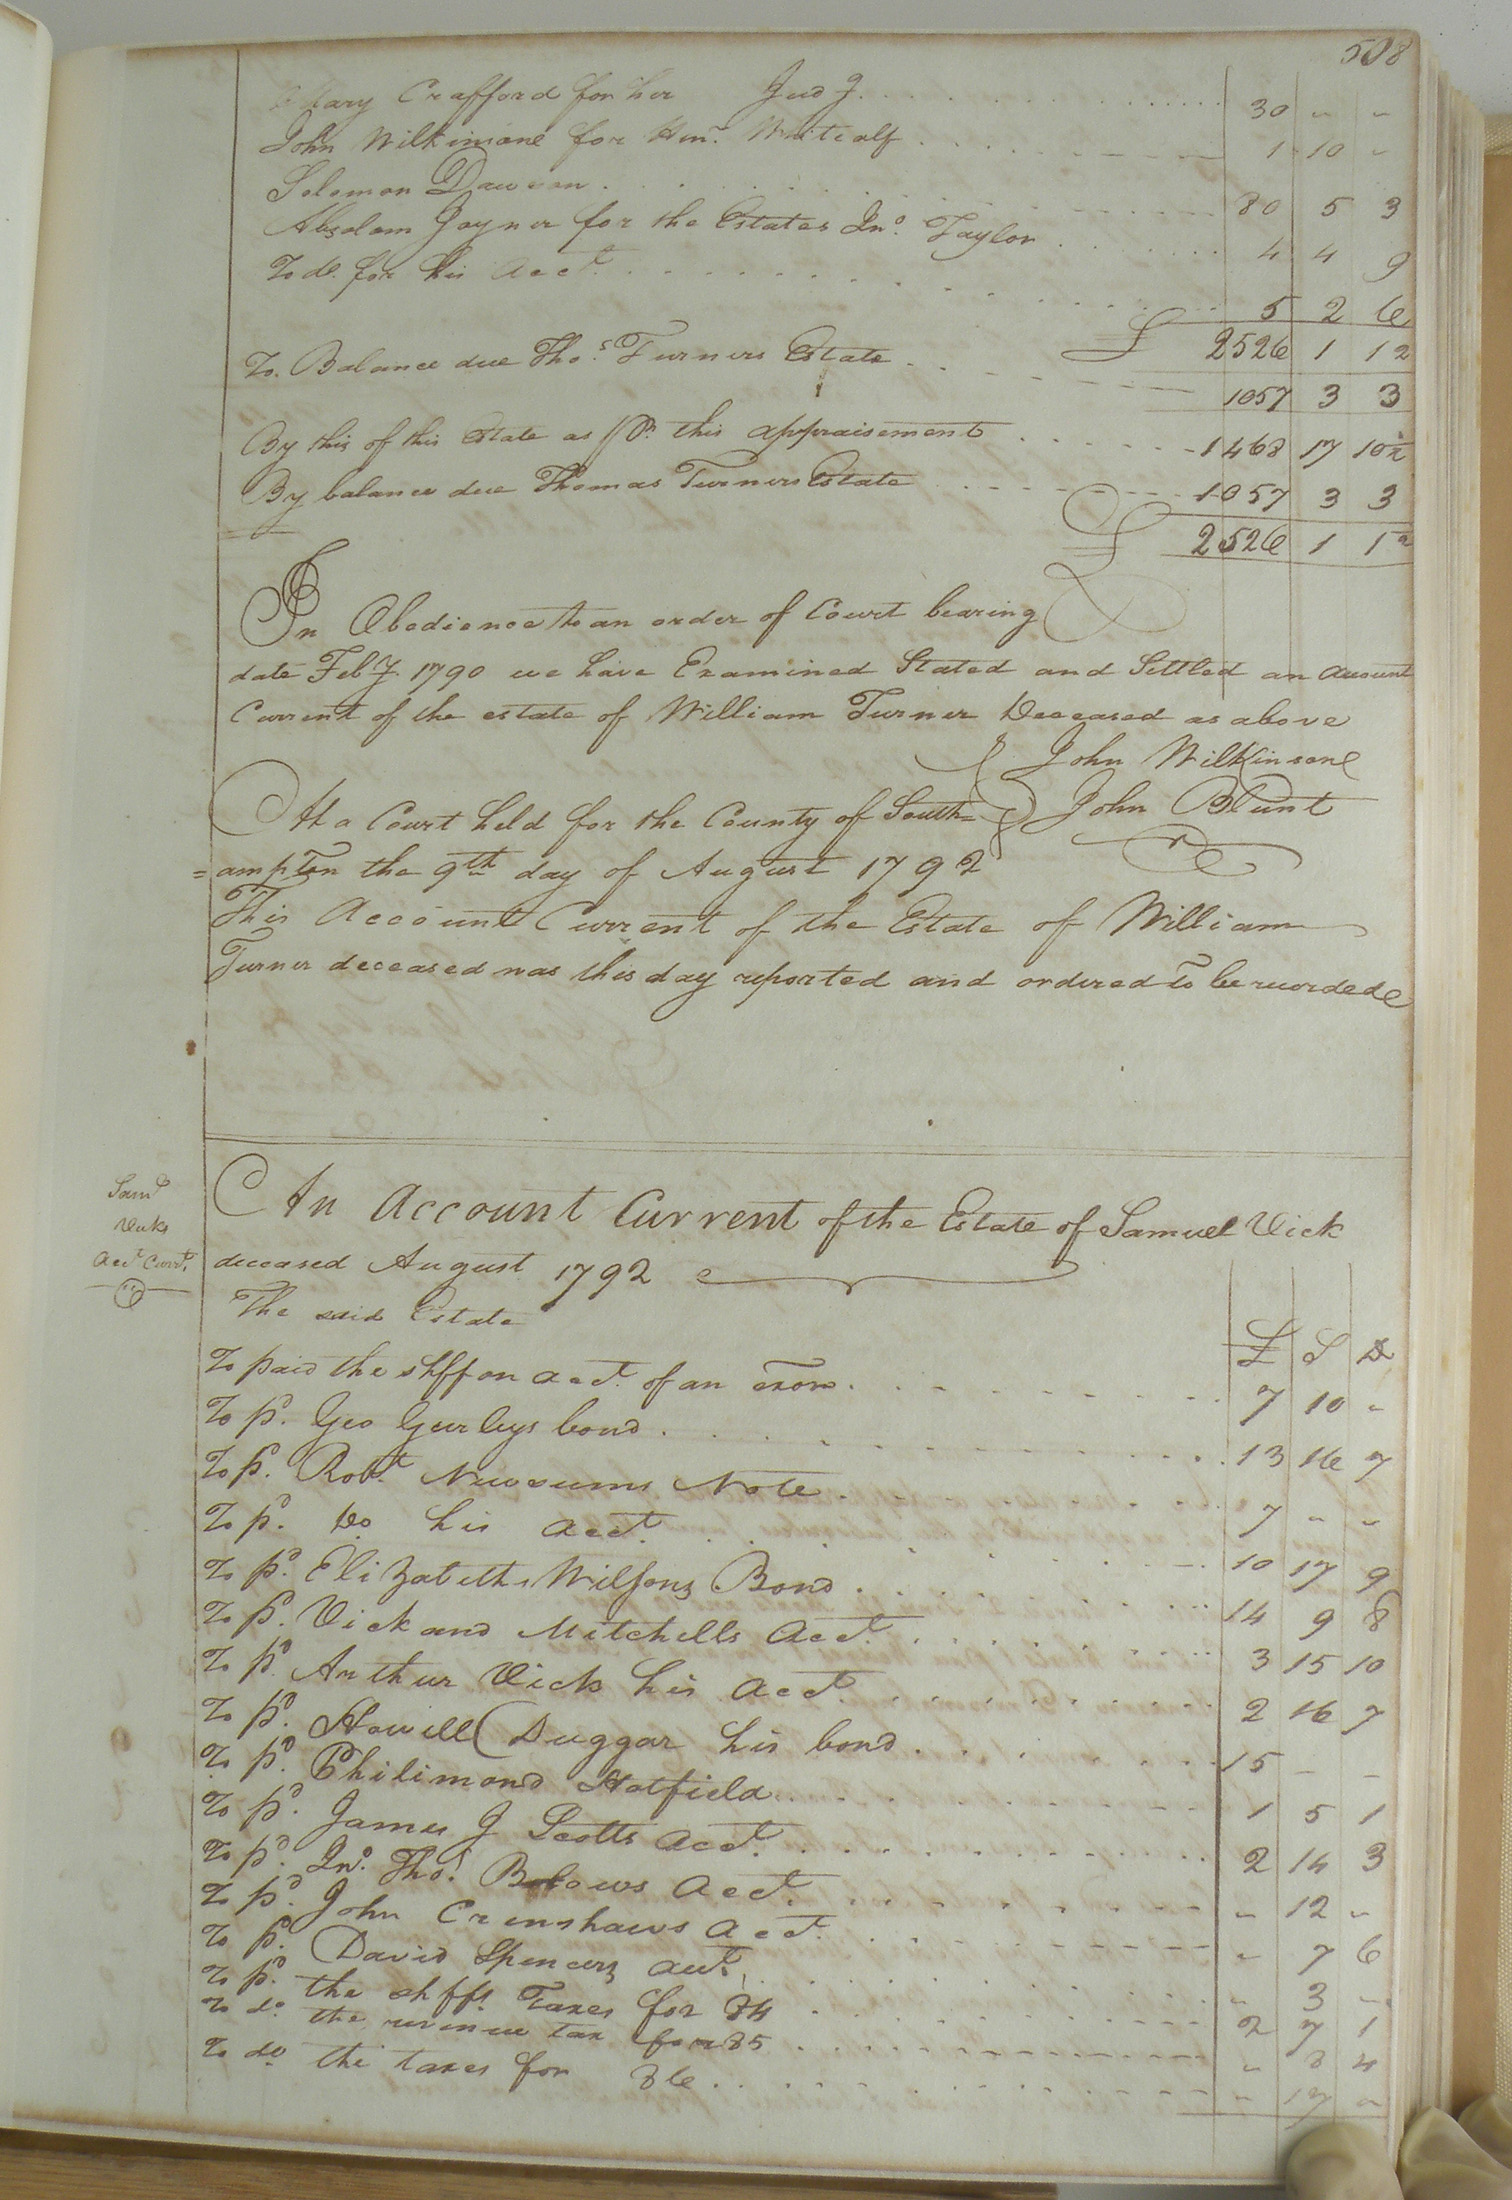 508
Mary Crafford for her Judg. 30 " "
John Wilkinsone for Hen. Mutcalf 1 10 "
Solomon Dawson 80 5 3
Absolom Joyner for the Estates Jno. Taylor 4 4 9
To do. for his acct. 5 2 6
£ 2526 1 1 2
To. Balance due Thos. Turners Estate 1057 3 3
By this of this Estate as pr. this appraisement 1468 17 10 2
By balance due Thomas Turners Estate 1057 3 3
£ 2526 1 1 2
In Obedience to an order of Court bearing
date Feby. 1790 we have Examined Stated and Settled an account
Current of the estate of William Turner Deceased as above
John Wilkinsone
John Blunt
At a Court held for the County of South=
=ampton the 9th day of August 1792
This Account Current of the Estate of William
Turner deceased was this day reported and ordered to be recorded
Saml
Vicks
Acct. Currt.
An Account Current of the Estate of Samuel Vick
deceased August 1792
The said Estate
£ S D
To paid the shff on acct. of an exon. 7 10 "
To pd. Geo Gurleys bond 13 16 7
To pd. Robt. Newsums Note 7 " "
To pd. Do his acct. 10 17 9
To pd. Elizabeth Wilsons Bond 14 9 8
To pd. Vick and Mitchells acct. 3 15 10
To pd. Arthur Vick his acct. 2 16 7
To pd. Howill Duggar his bond 15 - -
To pd. Philimond Hatfield 1 5 1
To pd. James J Scotts acct. 2 14 3
To pd. Jno. Thos. Blows acct. " 12 "
To pd. John Crenshaws acct. " 7 6
To pd. David Spencers acct. " 3 "
To pd. the shffs Taxes for 84 2 7 1
To do. the revenue tax for 85 " 8 4
To do the taxes for 86 " 17 "